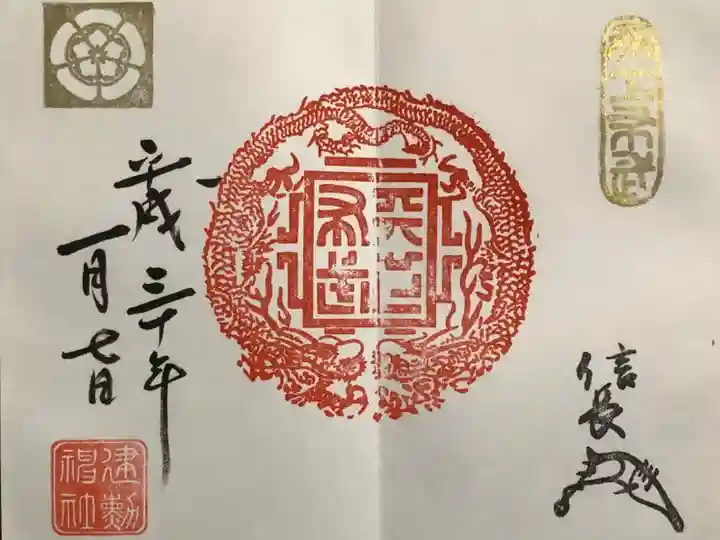 天下布武
天下布武
信長
平成三十年
一月七日
建勲神社